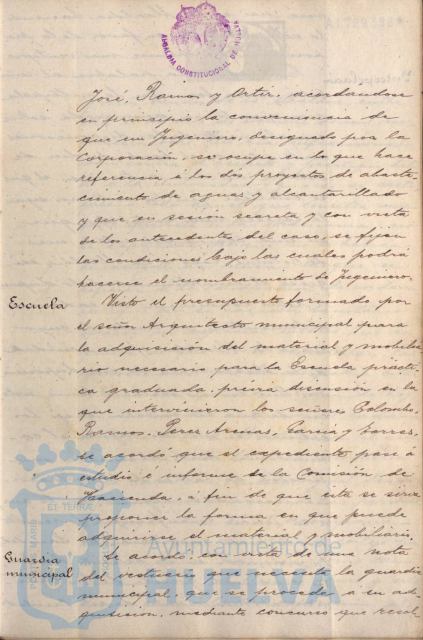 ALCALDIA CONSTITUCIONAL DE HUELVA
José, Ramos y Ortiz, acordandose
en principio la conveniencia de
que un Ingeniero, designado por la
Corporación, se ocupe en lo que hace
referencia á los dos proyectos de abaste-
cimiento de aguas y alcantarillado
y que en sesión secreta y con vista
de los antecedentes del caso, se fijen
las condiciones bajo las cuales podrá
hacerse el nombramiento de Ingeniero.
Escuela
Visto el presupuesto formado por
el señor Arquitecto municipal para
la adquisición del material y mobilia-
rio necesario para la Escuela prácti-
ca graduada, prévia discusión en la
que intervinieron los señores Colombo,
Ramos, Perez Arenas, García y Torres,
se acordó que el expediente pase á
estudio é informe de la Comisión de
Hacienda, á fin de que esta se sirva
proponer la forma en que puede
adquirirse el material y mobiliario.
Guardia
municipal
Se acordó con vista de una nota
del vestuario que necesita la guardia
municipal, que se proceda á su ad-
quisición, mediante concurso que resol-
Ayuntamiento de
HUELVA